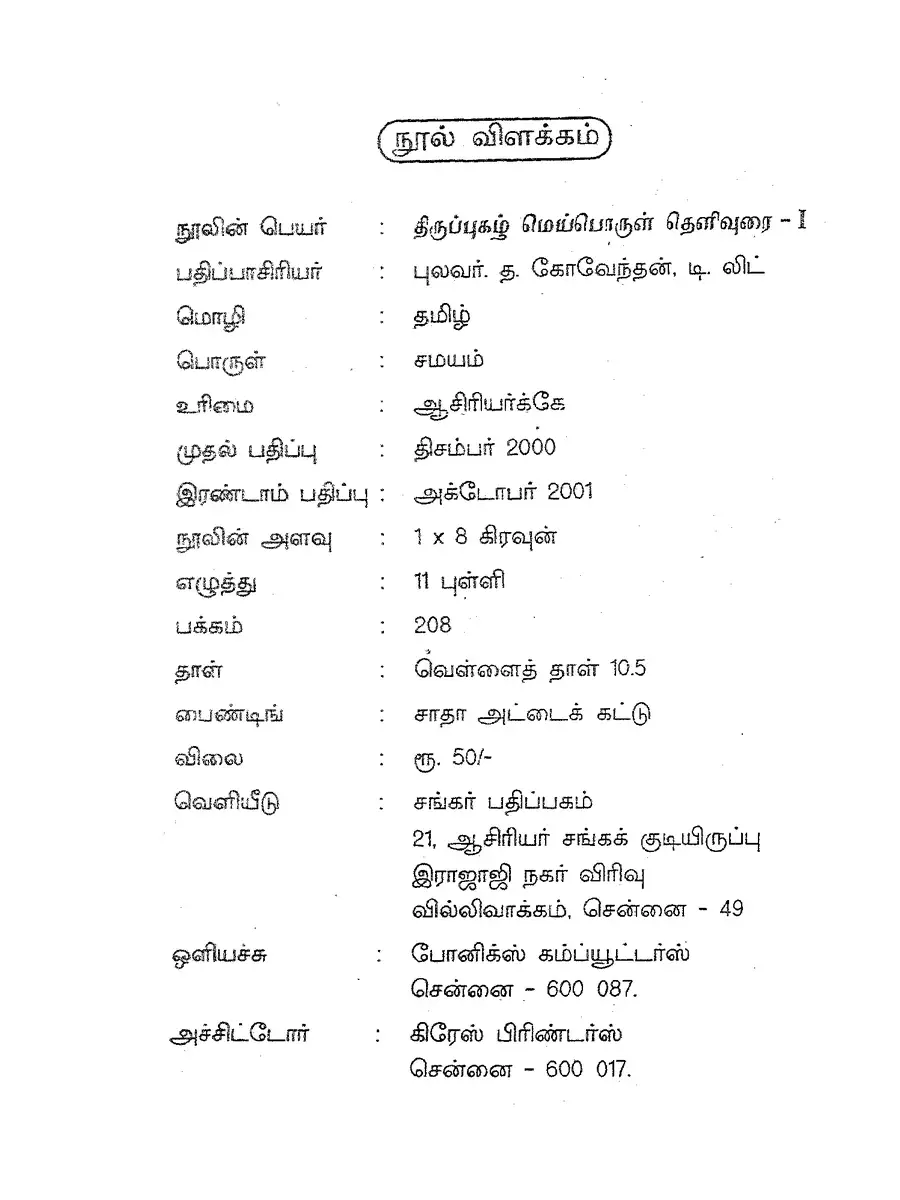 நூல் விளக்கம்
நூலின் பெயர் : திருப்புகழ் மெய்பொருள் தெளிவுரை - I
பதிப்பாசிரியர் : புலவர். த. கோவேந்தன், டி. லிட்
மொழி : தமிழ்
பொருள் : சமயம்
உரிமை : ஆசிரியர்க்கே
முதல் பதிப்பு : திசம்பர் 2000
இரண்டாம் பதிப்பு : அக்டோபர் 2001
நூலின் அளவு : 1 x 8 கிரவுன்
எழுத்து : 11 புள்ளி
பக்கம் : 208
தாள் : வெள்ளைத் தாள் 10.5
பைண்டிங் : சாதா அட்டைக் கட்டு
விலை : ரூ. 50/-
வெளியீடு : சங்கர் பதிப்பகம்
21, ஆசிரியர் சங்கக் குடியிருப்பு
இராஜாஜி நகர் விரிவு
வில்லிவாக்கம், சென்னை - 49
ஒளியச்சு : போனிக்ஸ் கம்ப்யூட்டர்ஸ்
சென்னை - 600 087.
அச்சிட்டோர் : கிரேஸ் பிரிண்டர்ஸ்
சென்னை - 600 017.